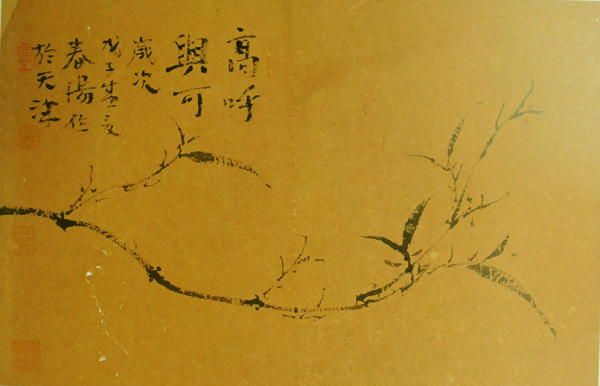 高呼
與可
歲次
戊子盛夏
春陽作
於天津